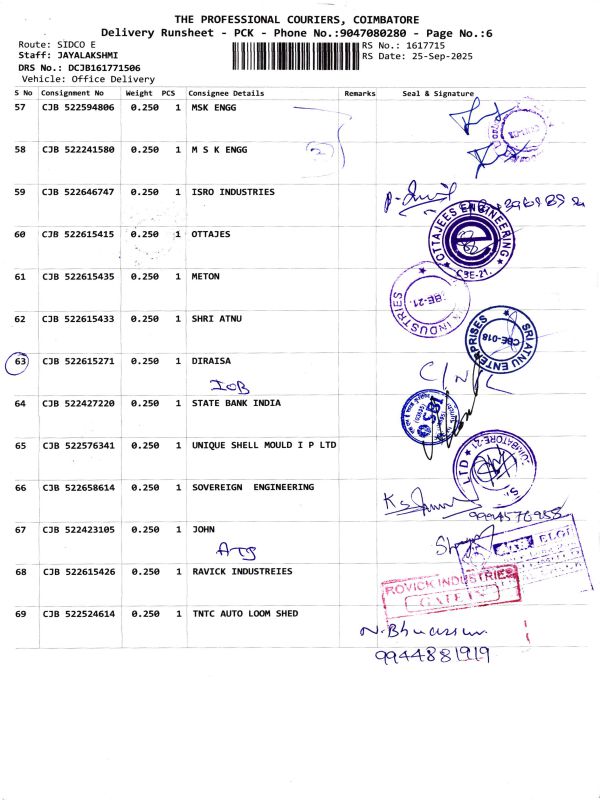 THE PROFESSIONAL COURIERS, COIMBATORE
Delivery Runsheet - PCK - Phone No.:9047080280 - Page No.:6
Route: SIDCO E
RS No.: 1617715
Staff: JAYALAKSHMI
RS Date: 25-Sep-2025
DRS No.: DCJB161771506
Vehicle: Office Delivery
S No Consignment No Weight PCS Consignee Details Remarks Seal & Signature
57 CJB 522594806 0.250 1 MSK ENGG
58 CJB 522241580 0.250 1 M S K ENGG
2
59 CJB 522646747 0.250 1 ISRO INDUSTRIES
60 CJB 522615415 0.250 1 OTTAJES
OTTAJEES ENGINEERING
CBE-21.
61 CJB 522615435 0.250 1 METON
INDUSTRIES
CBE-21
62 CJB 522615433 0.250 1 SHRI ATNU
SRI ATNU ENTERPRISES
CBE-018
63 CJB 522615271 0.250 1 DIRAISA
IOB
64 CJB 522427220 0.250 1 STATE BANK INDIA
SBI
65 CJB 522576341 0.250 1 UNIQUE SHELL MOULD I P LTD
LTD
COIMBATORE-21
66 CJB 522658614 0.250 1 SOVEREIGN ENGINEERING
9994576958
67 CJB 522423105 0.250 1 JOHN
ATS
68 CJB 522615426 0.250 1 RAVICK INDUSTREIES
ROVICK INDUSTRIES
GATE IN
69 CJB 522524614 0.250 1 TNTC AUTO LOOM SHED
9944881919